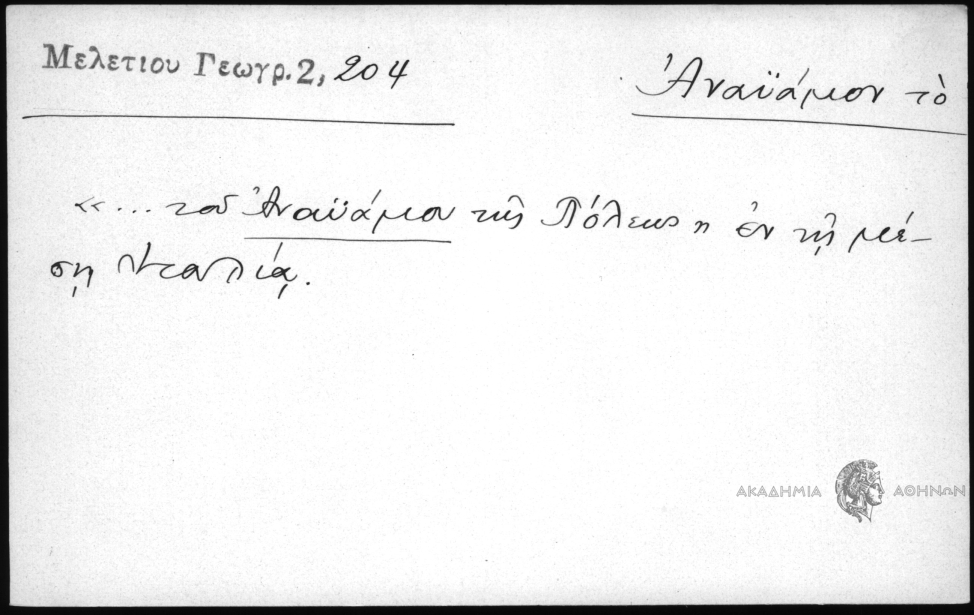 Μελετιου Γεωγρ.2, 204
Ἀναϋάμιον τὸ
«... τοῦ Ἀναϋάμιου τῆς Πόλεως η ἐν τῇ μέ-
σῃ Ἰταλίᾳ.
ΑΚΑΔΗΜΙΑ ΑΘΗΝΩΝ